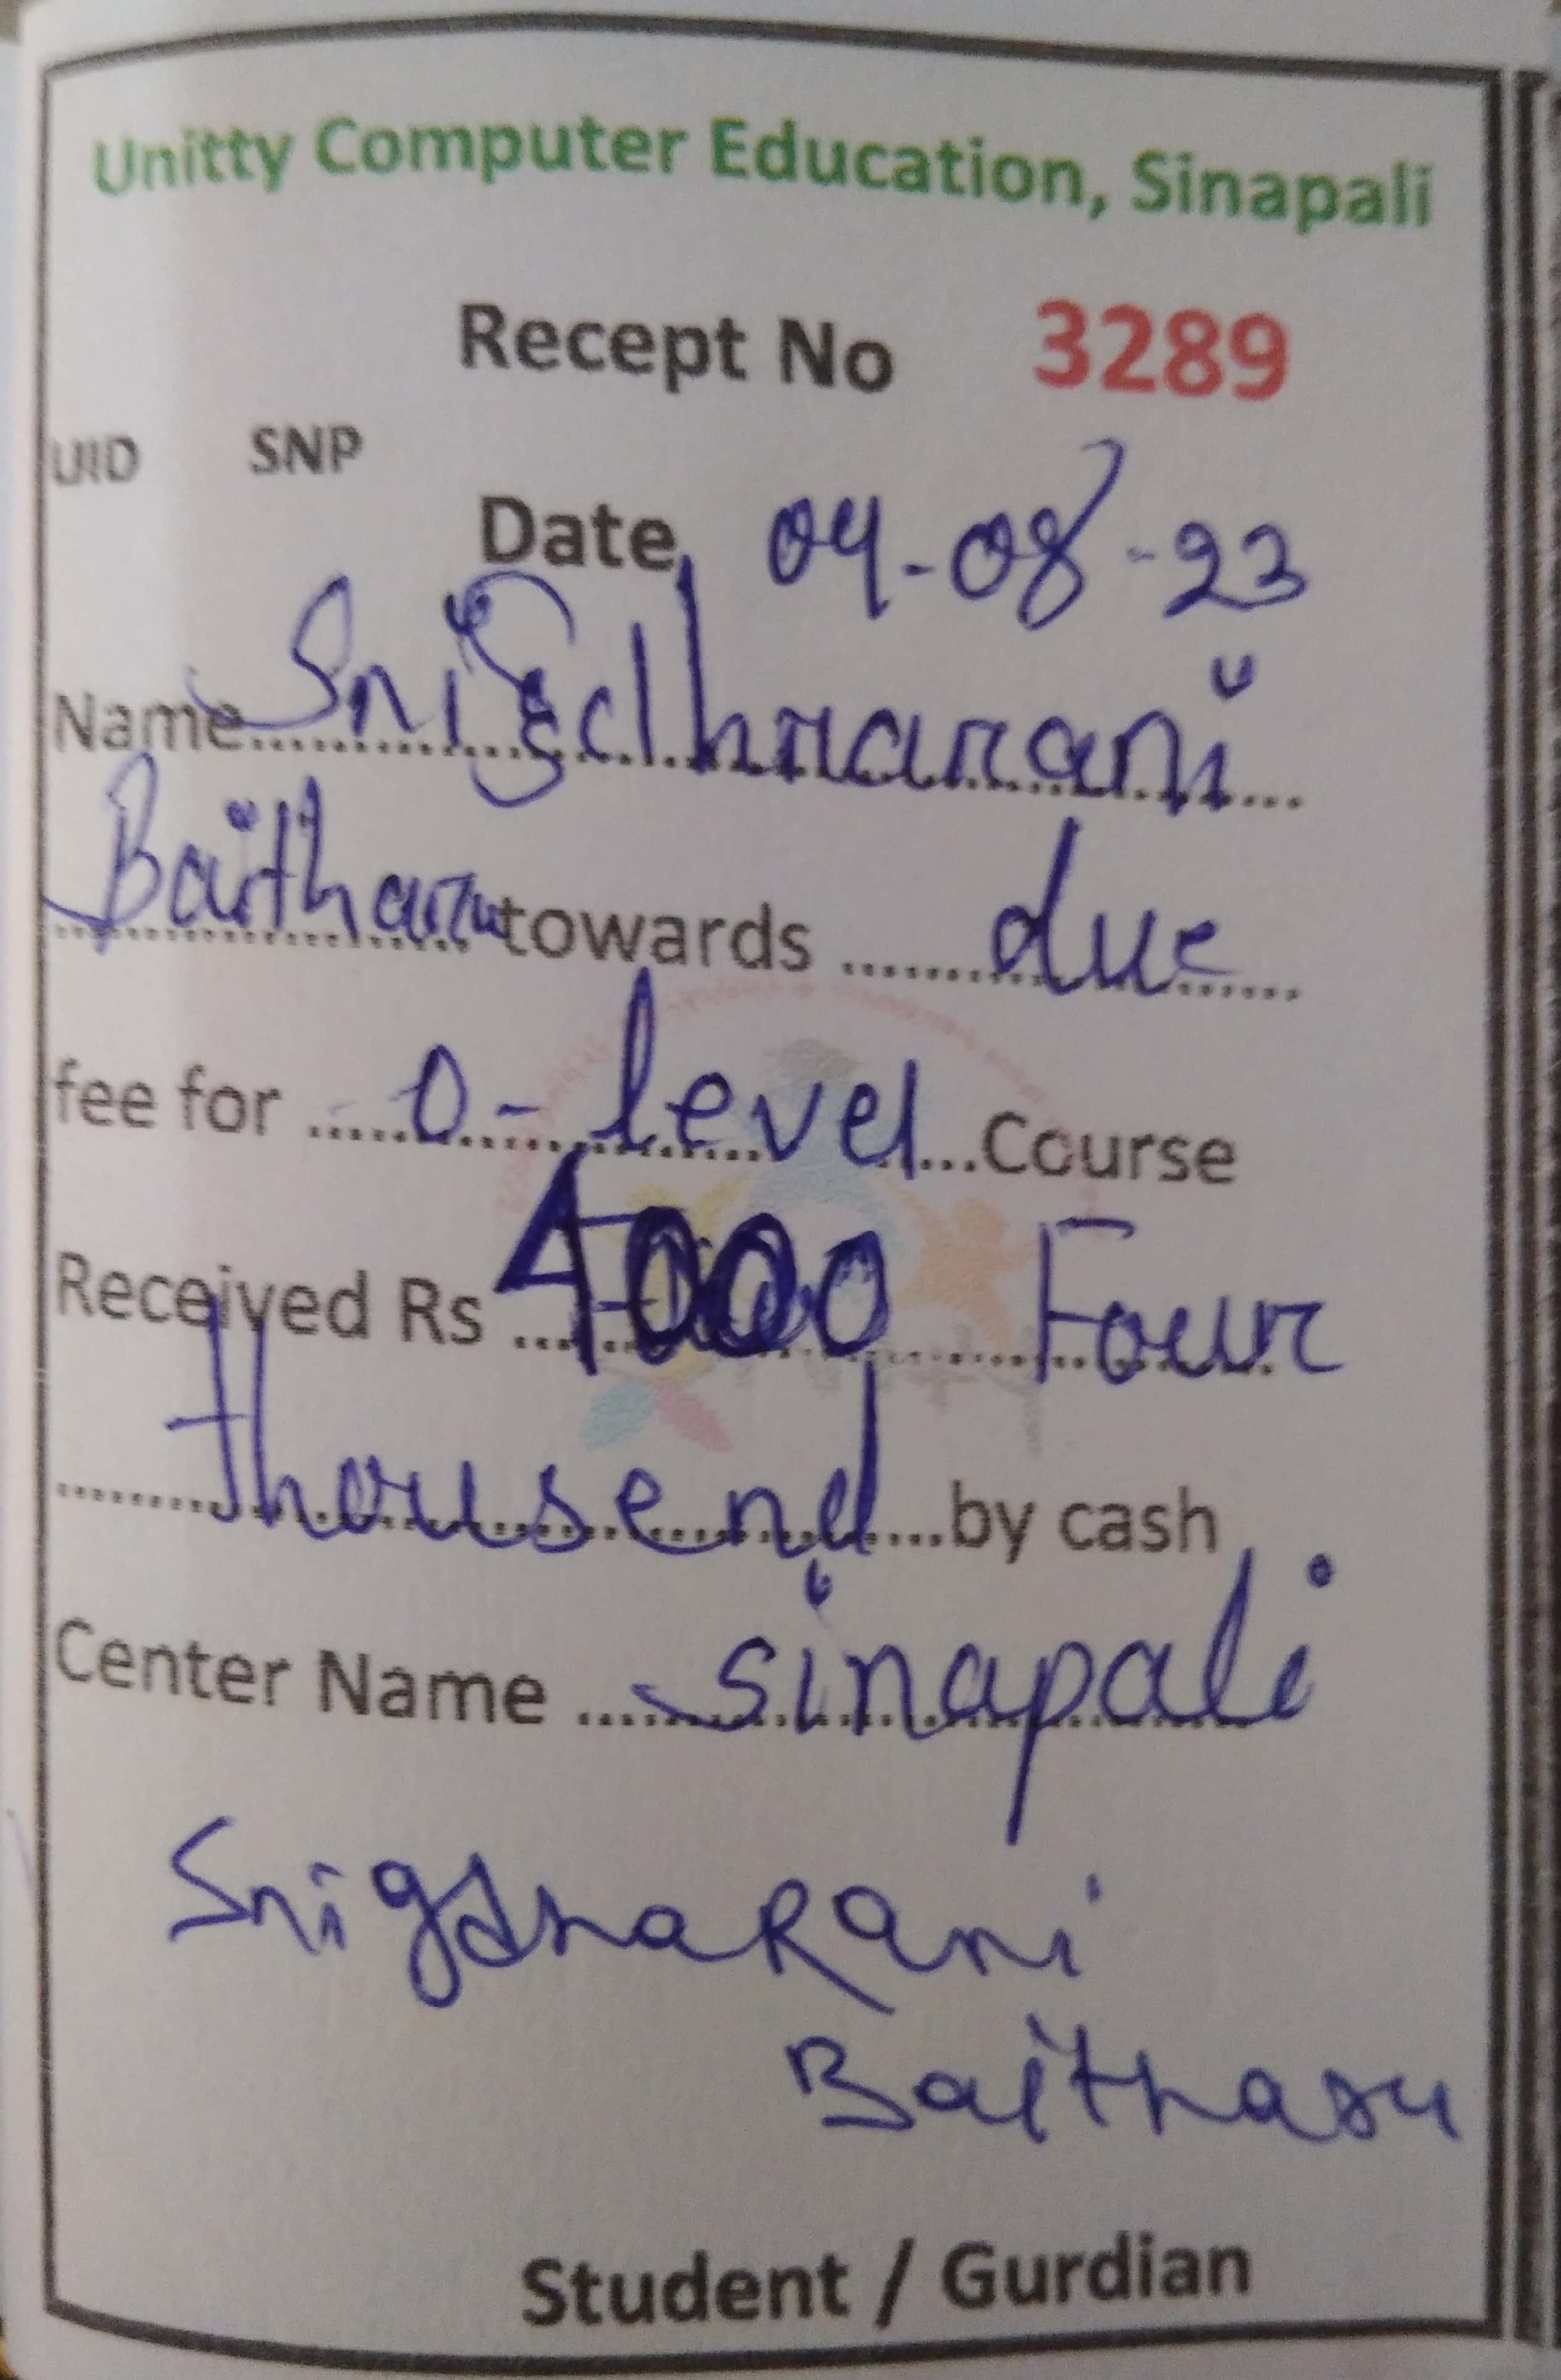 Unitty Computer Education, Sinapali
Recept No 3289
UID SNP
Date 04-08-23
Name Snigdhrarani
Baitharu towards due
fee for O-level Course
Received Rs 4000 Four
thousend by cash
Center Name sinapali
SnigdhaRani
Baitharu
Student / Gurdian